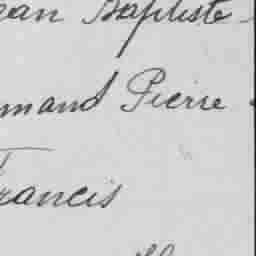 ean Baptiste
mand Pierre
rancis